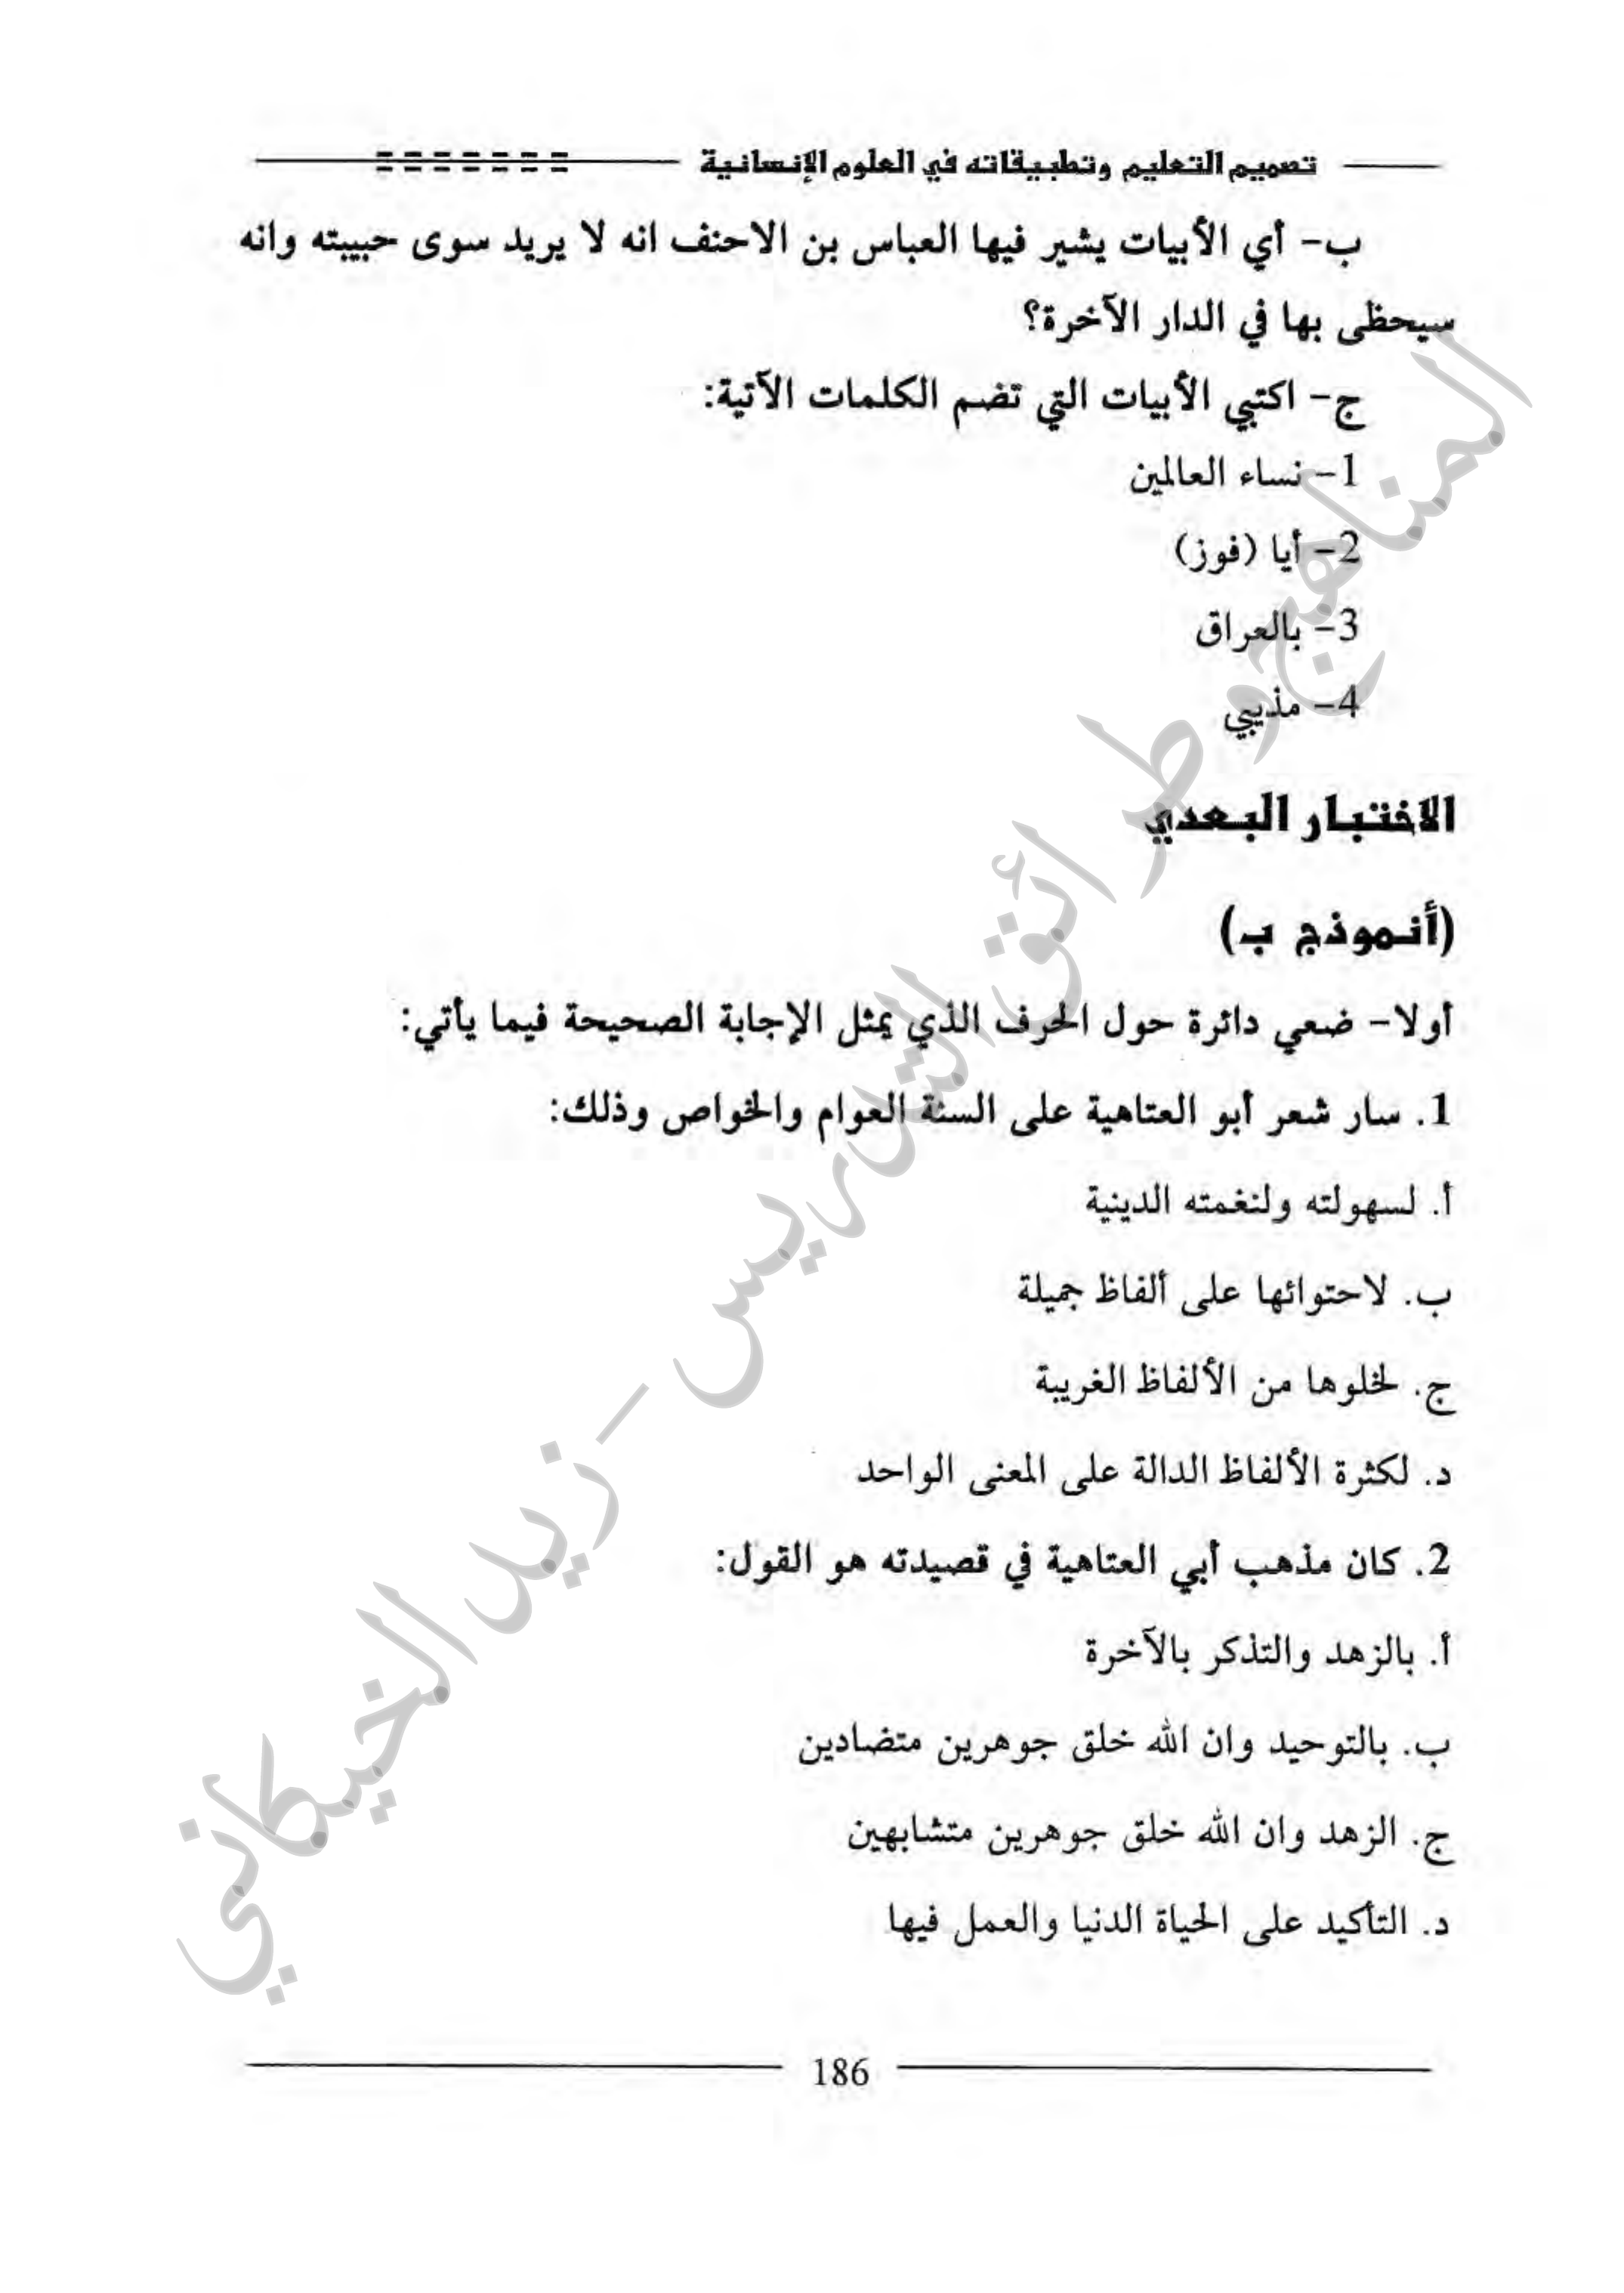 تصميم التعليم وتطبيقاته في العلوم الإنسانية
ب- أي الأبيات يشير فيها العباس بن الاحنف انه لا يريد سوى حبيبته وانه
سيحظى بها في الدار الآخرة؟
ج- اكتبي الأبيات التي تضم الكلمات الآتية:
1- نساء العالمين
2- أيا (فوز)
3- بالعراق
4- مذيبي
الاختبار البعدي
(أنموذج ب)
أولا- ضعي دائرة حول الحرف الذي يمثل الإجابة الصحيحة فيما يأتي:
1. سار شعر أبو العتاهية على السنة العوام والخواص وذلك:
أ. لسهولته ولنغمته الدينية
ب. لاحتوائها على ألفاظ جميلة
ج. لخلوها من الألفاظ الغريبة
د. لكثرة الألفاظ الدالة على المعنى الواحد
2. كان مذهب أبي العتاهية في قصيدته هو القول:
أ. بالزهد والتذكر بالآخرة
ب. بالتوحيد وان الله خلق جوهرين متضادين
ج. الزهد وان الله خلق جوهرين متشابهين
د. التأكيد على الحياة الدنيا والعمل فيها
186
المناهج وطرائق التدريس - زيد الخيكاني